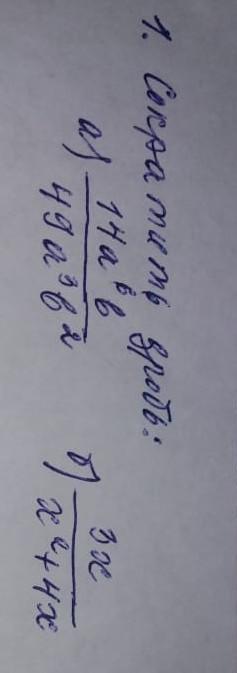 1. Сократить дробь:
а) 14a⁶b / 49a³b² б) 3x / x²+4x